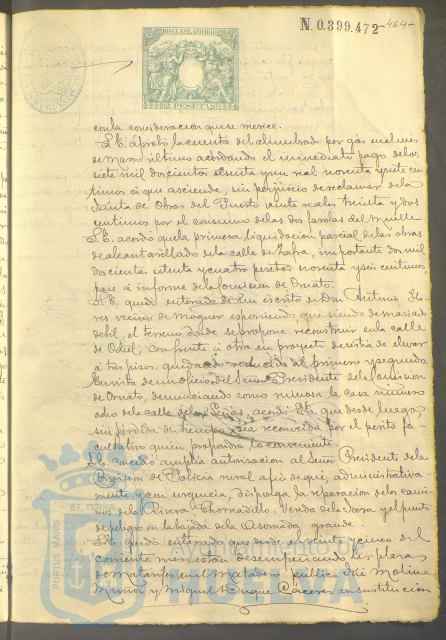 N. 0.399.472 -464-
10ª CLASE. AÑO 1888
2 PESETAS
con la consideración que se merece.
S.E. aprobó la cuenta del alumbrado por gas en el mes
de Marzo último acordando el inmediato pago de los
siete mil doscientos sesenta y un real noventa y siete cen
timos á que asciende, sin perjuicio de reclamar de la
Junta de Obras del Puerto veinte reales treinta y dos
centimos por el consumo de las dos farolas del muelle.
S.E. acordó que la primera liquidación parcial de las obras
de alcantarillado de la calle de Zafra, importante dos mil
doscientas setenta y cuatro pesetas noventa y seis centimos
pase á informe de la Comision de Ornato.
S.E. quedó enterado de un escrito de Don Antonio
vecino de Moguer exponiendo que siendo demasiado
debil el terreno donde se propone reconstruir en la calle
de Odiel, con frente á otra en proyecto desistia de elevar
á tres pisos, quedando reducido al primero y segunda
En vista de un oficio del Señor Presidente de la Comision
de Ornato, denunciando como ruinosa la casa número
ocho de la calle de acordó S.E. que desde luego,
sin pérdida de tiempo sea reconocida por el perito fa
cultativo quien propondrá lo conveniente.
S.E. concedió amplia autorizacion al Señor Presidente de la
Comision de Policia rural afin de que, administrativa
mente y con urgencia, disponga la reparacion de los cami
nos de la Rivera, Chorreadillo, Vereda de la Jara y el punto
de peligro en la bajada de la grande.
S.E. quedó enterado que desde el veinte y cinco del
corriente mes estan desempeñando las plazas
de Matarifes en el Matadero público José Molina
Muñoz y Miguel Duque Cáceres en sustitucion
PORTUS MARIS ET TERRAE
Ayuntamiento de
HUELVA